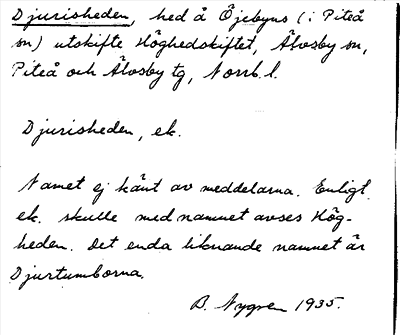 Djurisheden, hed å Öjebyns (i Piteå
sn) utskifte Höghedskiftet, Älvsby sn,
Piteå och Älvsby tg, Norrb. l.
Djurisheden, ek.
Namet ej känt av meddelarna. Enligt
ek. skulle med namnet avses Hög-
heden. Det enda liknande namnet är
Djurtumborna.
B. Nygren 1935.